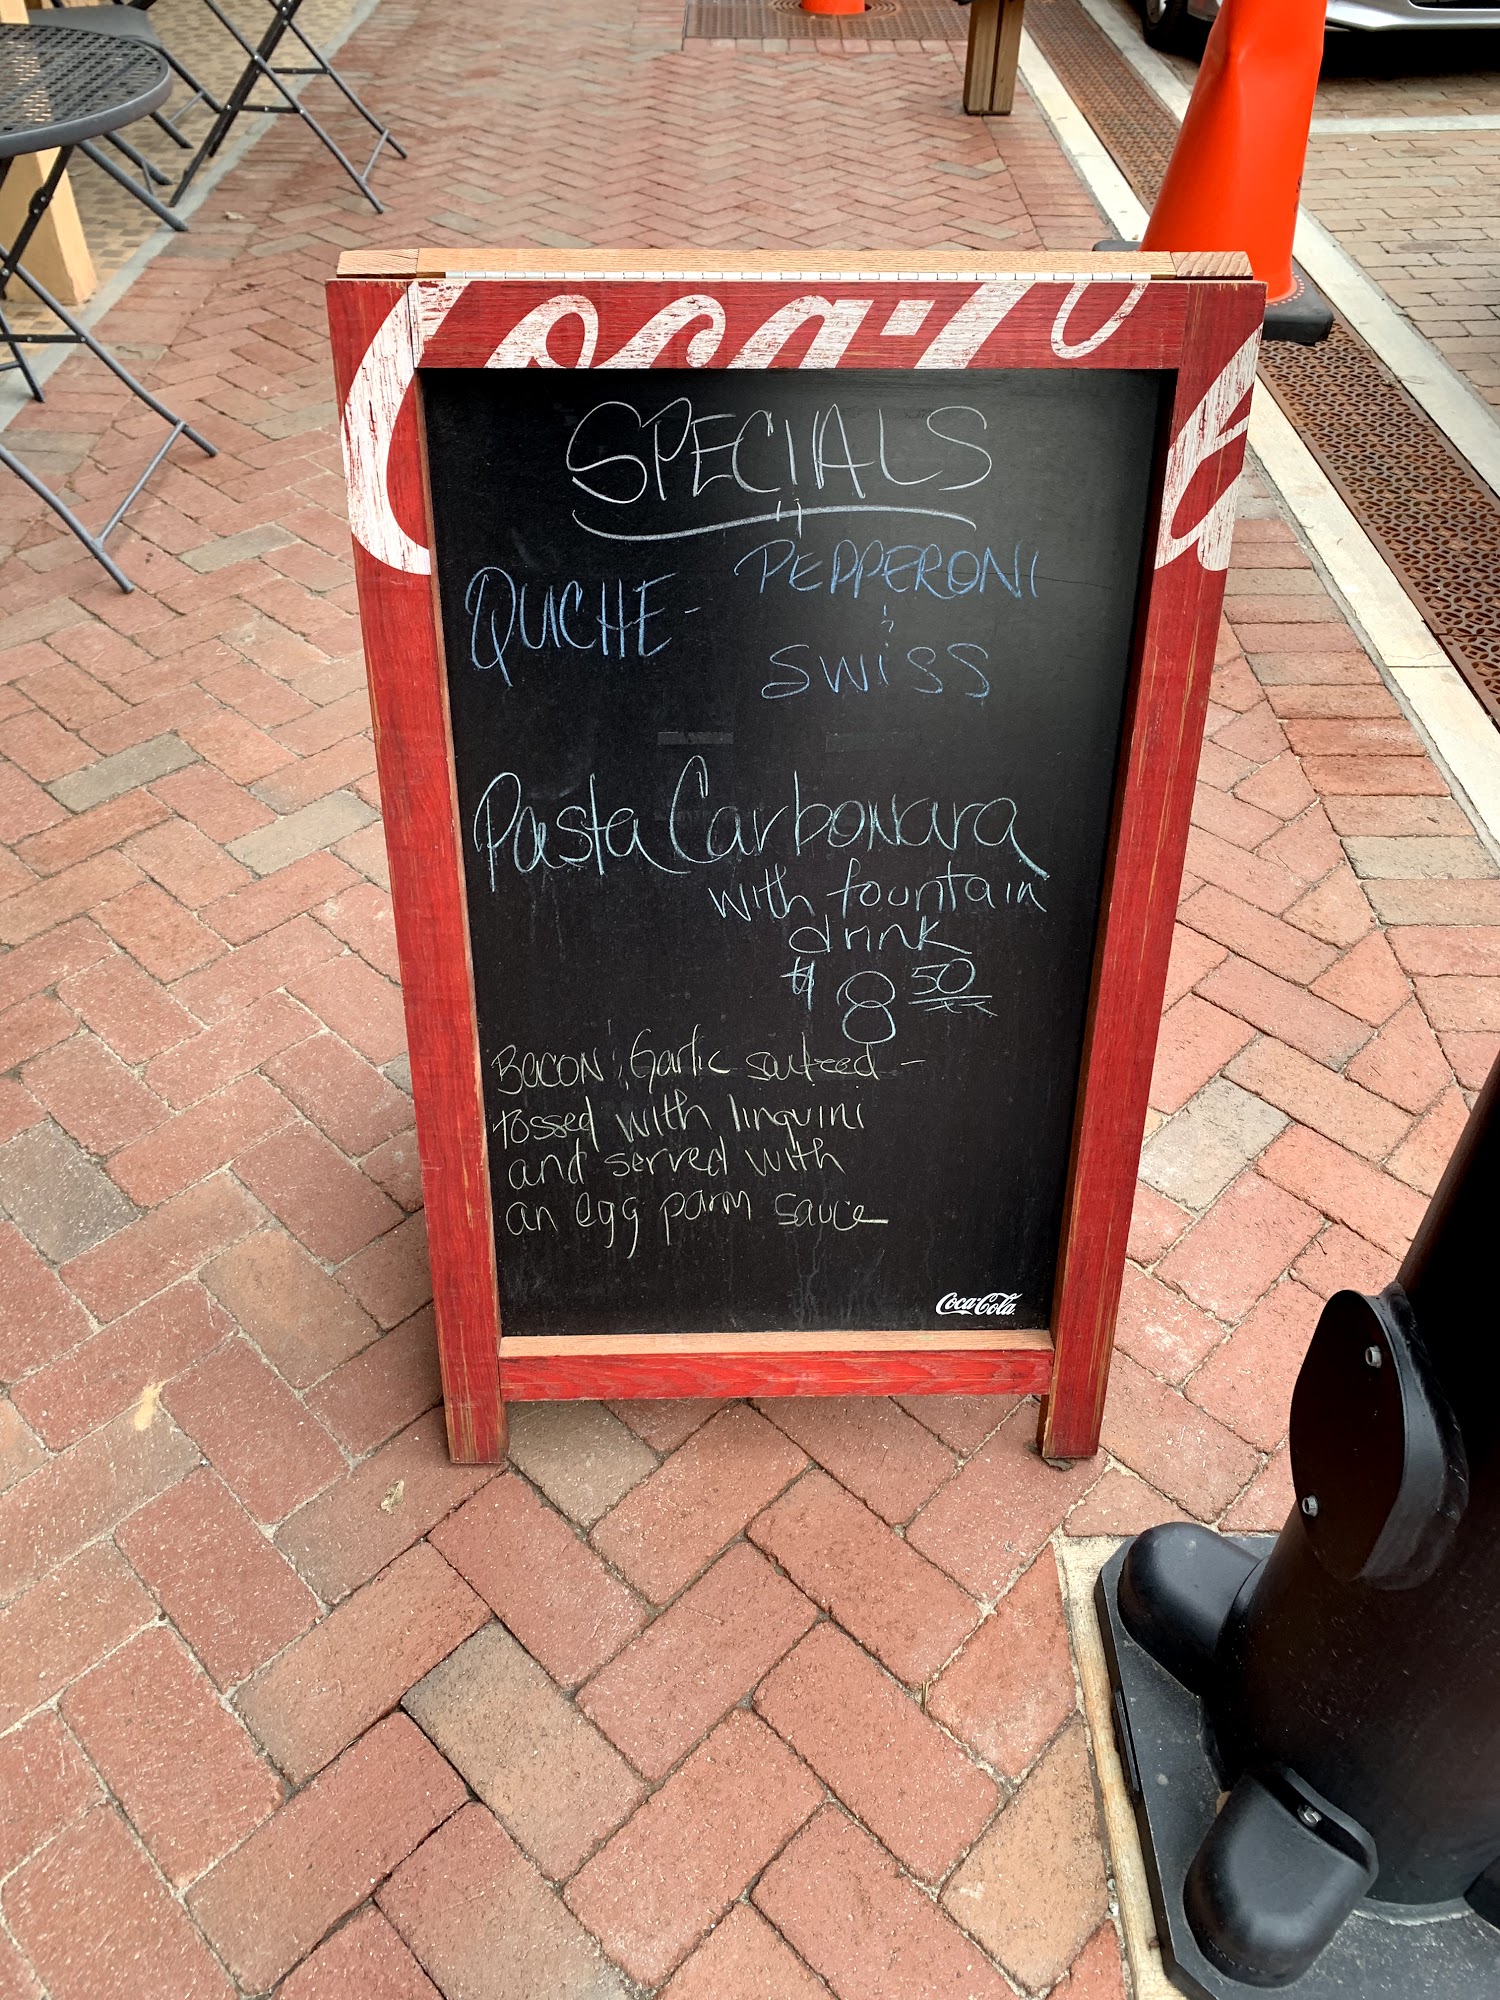 Coca-Cola
SPECIALS
QUICHE - PEPPERONI
&
SWiSS
Pasta Carbonara
with fountain
drink
$8 50
BACON & Garlic sauteed -
tossed with linquini
and served with
an egg parm sauce
Coca-Cola